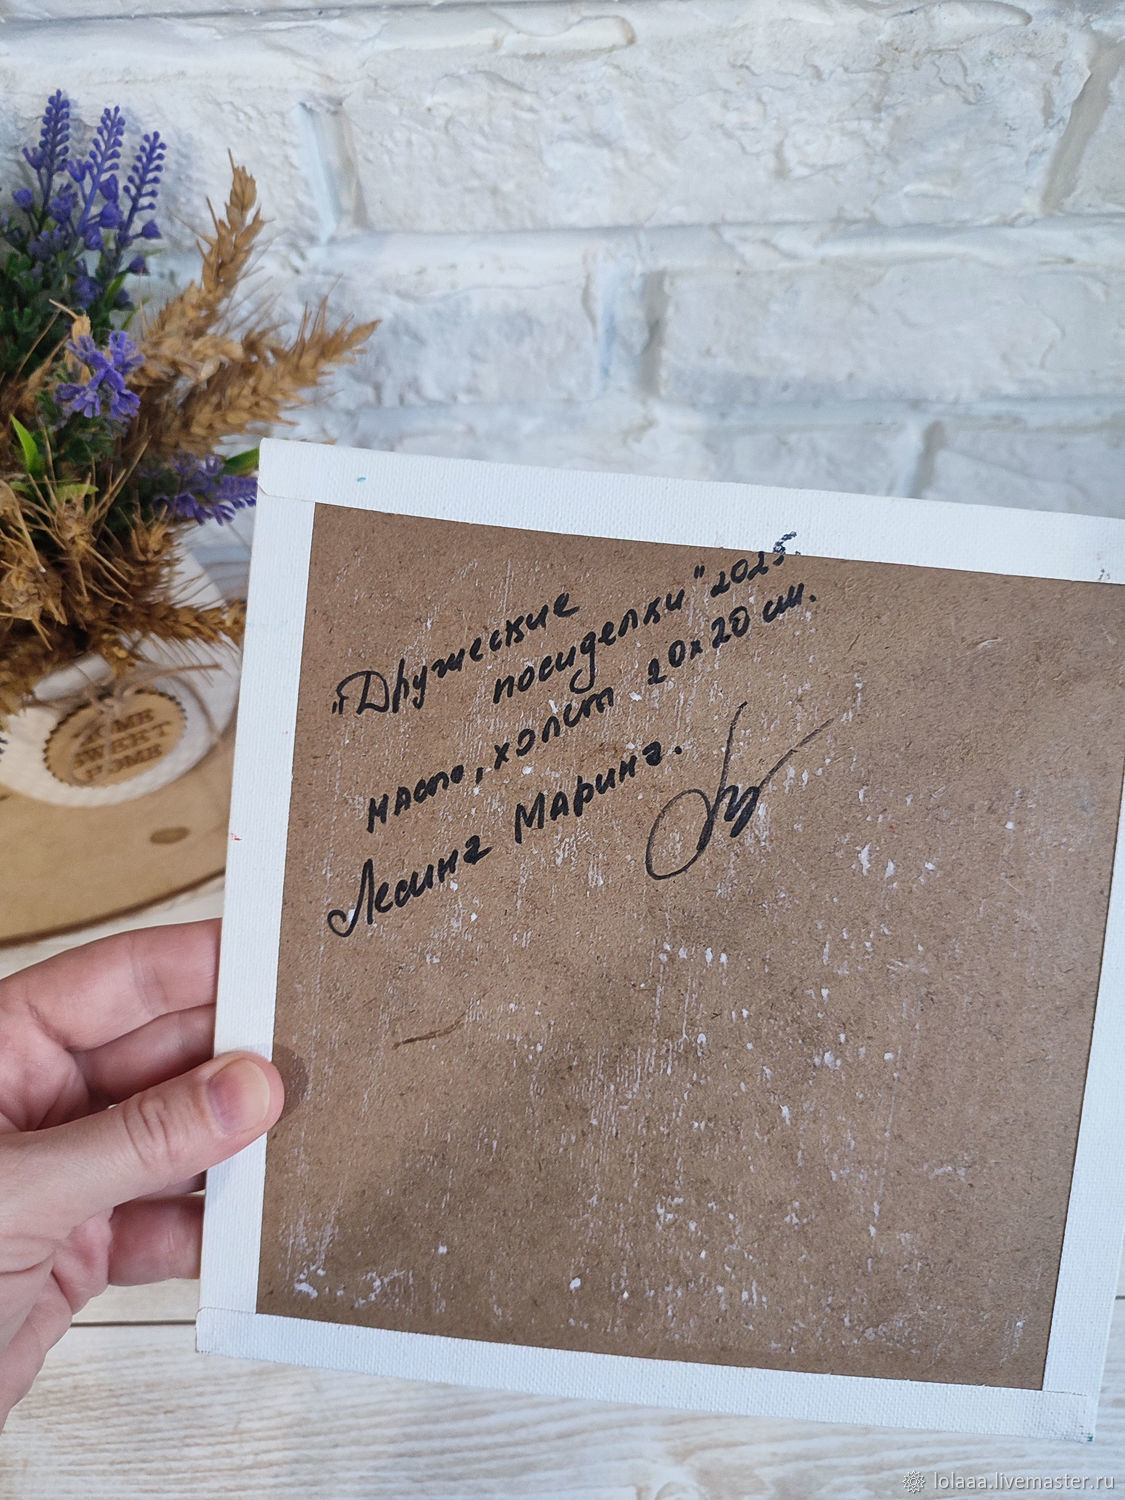 "Дружеские
посиделки" 2025
масло, холст 20х20 см.
Лесина Марина.
HOME
SWEET
HOME
lolaaa.livemaster.ru